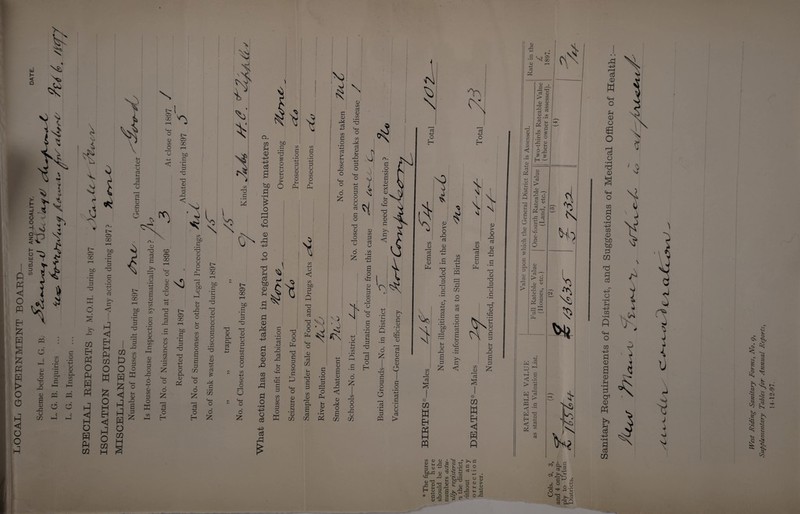 LOCAL GOVERNMENT BOARD—
SUBJECT AND LOCALITY. DATE.
Scheme before L. G. B. Sewage disposal
L. G. B. Inquiries ... for above Feb 6. 1897
L. G. B. Inspection ...
SPECIAL REPORTS by M.O.H. during 1897 Scarlet Fever
ISOLATION HOSPITAL—Any action during 1897? None
MISCELLANEOUS—
Number of Houses built during 1897 One General character Good
Is House-to-house Inspection systematically made? No
Total No. of Nuisances in hand at close of 1896 3 At close of 1897 1
Reported during 1897 6 Abated during 1897 5
Total No. of Summonses or other Legal Proceedings Nil
No. of Sink wastes disconnected during 1897 15
" " trapped " 15
No. of Closets constructed during 1897 9 Kinds Tubs W.C. & Tipplers
What action has been taken in regard to the following matters?
Houses unfit for habitation None Overcrowding None
Seizure of Unsound Food do Prosecutions do
Samples under Sale of Food and Drugs Acts do Prosecutions do
River Pollution Nil
Smoke Abatement Nil No. of observations taken Nil
Schools—No. in District 4 No. closed on account of outbreaks of disease 1
Total duration of closure from this cause 2 weeks
Burial Grounds—No. in District 5 Any need for extension? No
Vaccination—General efficiency Not Compulsory
* The figures entered here should be the numbers actually registered in the district, without any correction whatever.
BIRTHS*—Males 48 Females 54 Total 102
Number illegitimate, included in the above
Any information as to Still Births No
DEATHS*—Males 29 Females 44 Total 73
Number uncertified, included in the above 4
RATEABLE VALUE as stated in Valuation List.
Value upon which the General District Rate is Assessed.
Full Rateable Value (Houses, etc.)
One-fourth Rateable Value (Land, etc.)
Two-thirds Rateable Value (where owner is assessed).
Rate in the £ 1897.
(1) (2) (3) (4)
Cols. 2, 3, and 4 only apply to Urban Districts.
£16564 £13635 £732 2/4
Sanitary Requirements of District, and Suggestions of Medical Officer of Health:—
New Main Sewer, which is at present
under consideration
West Riding Sanitary Forms, No. 9,
Supplementary Tables for Annual Reports,
14-12-97.